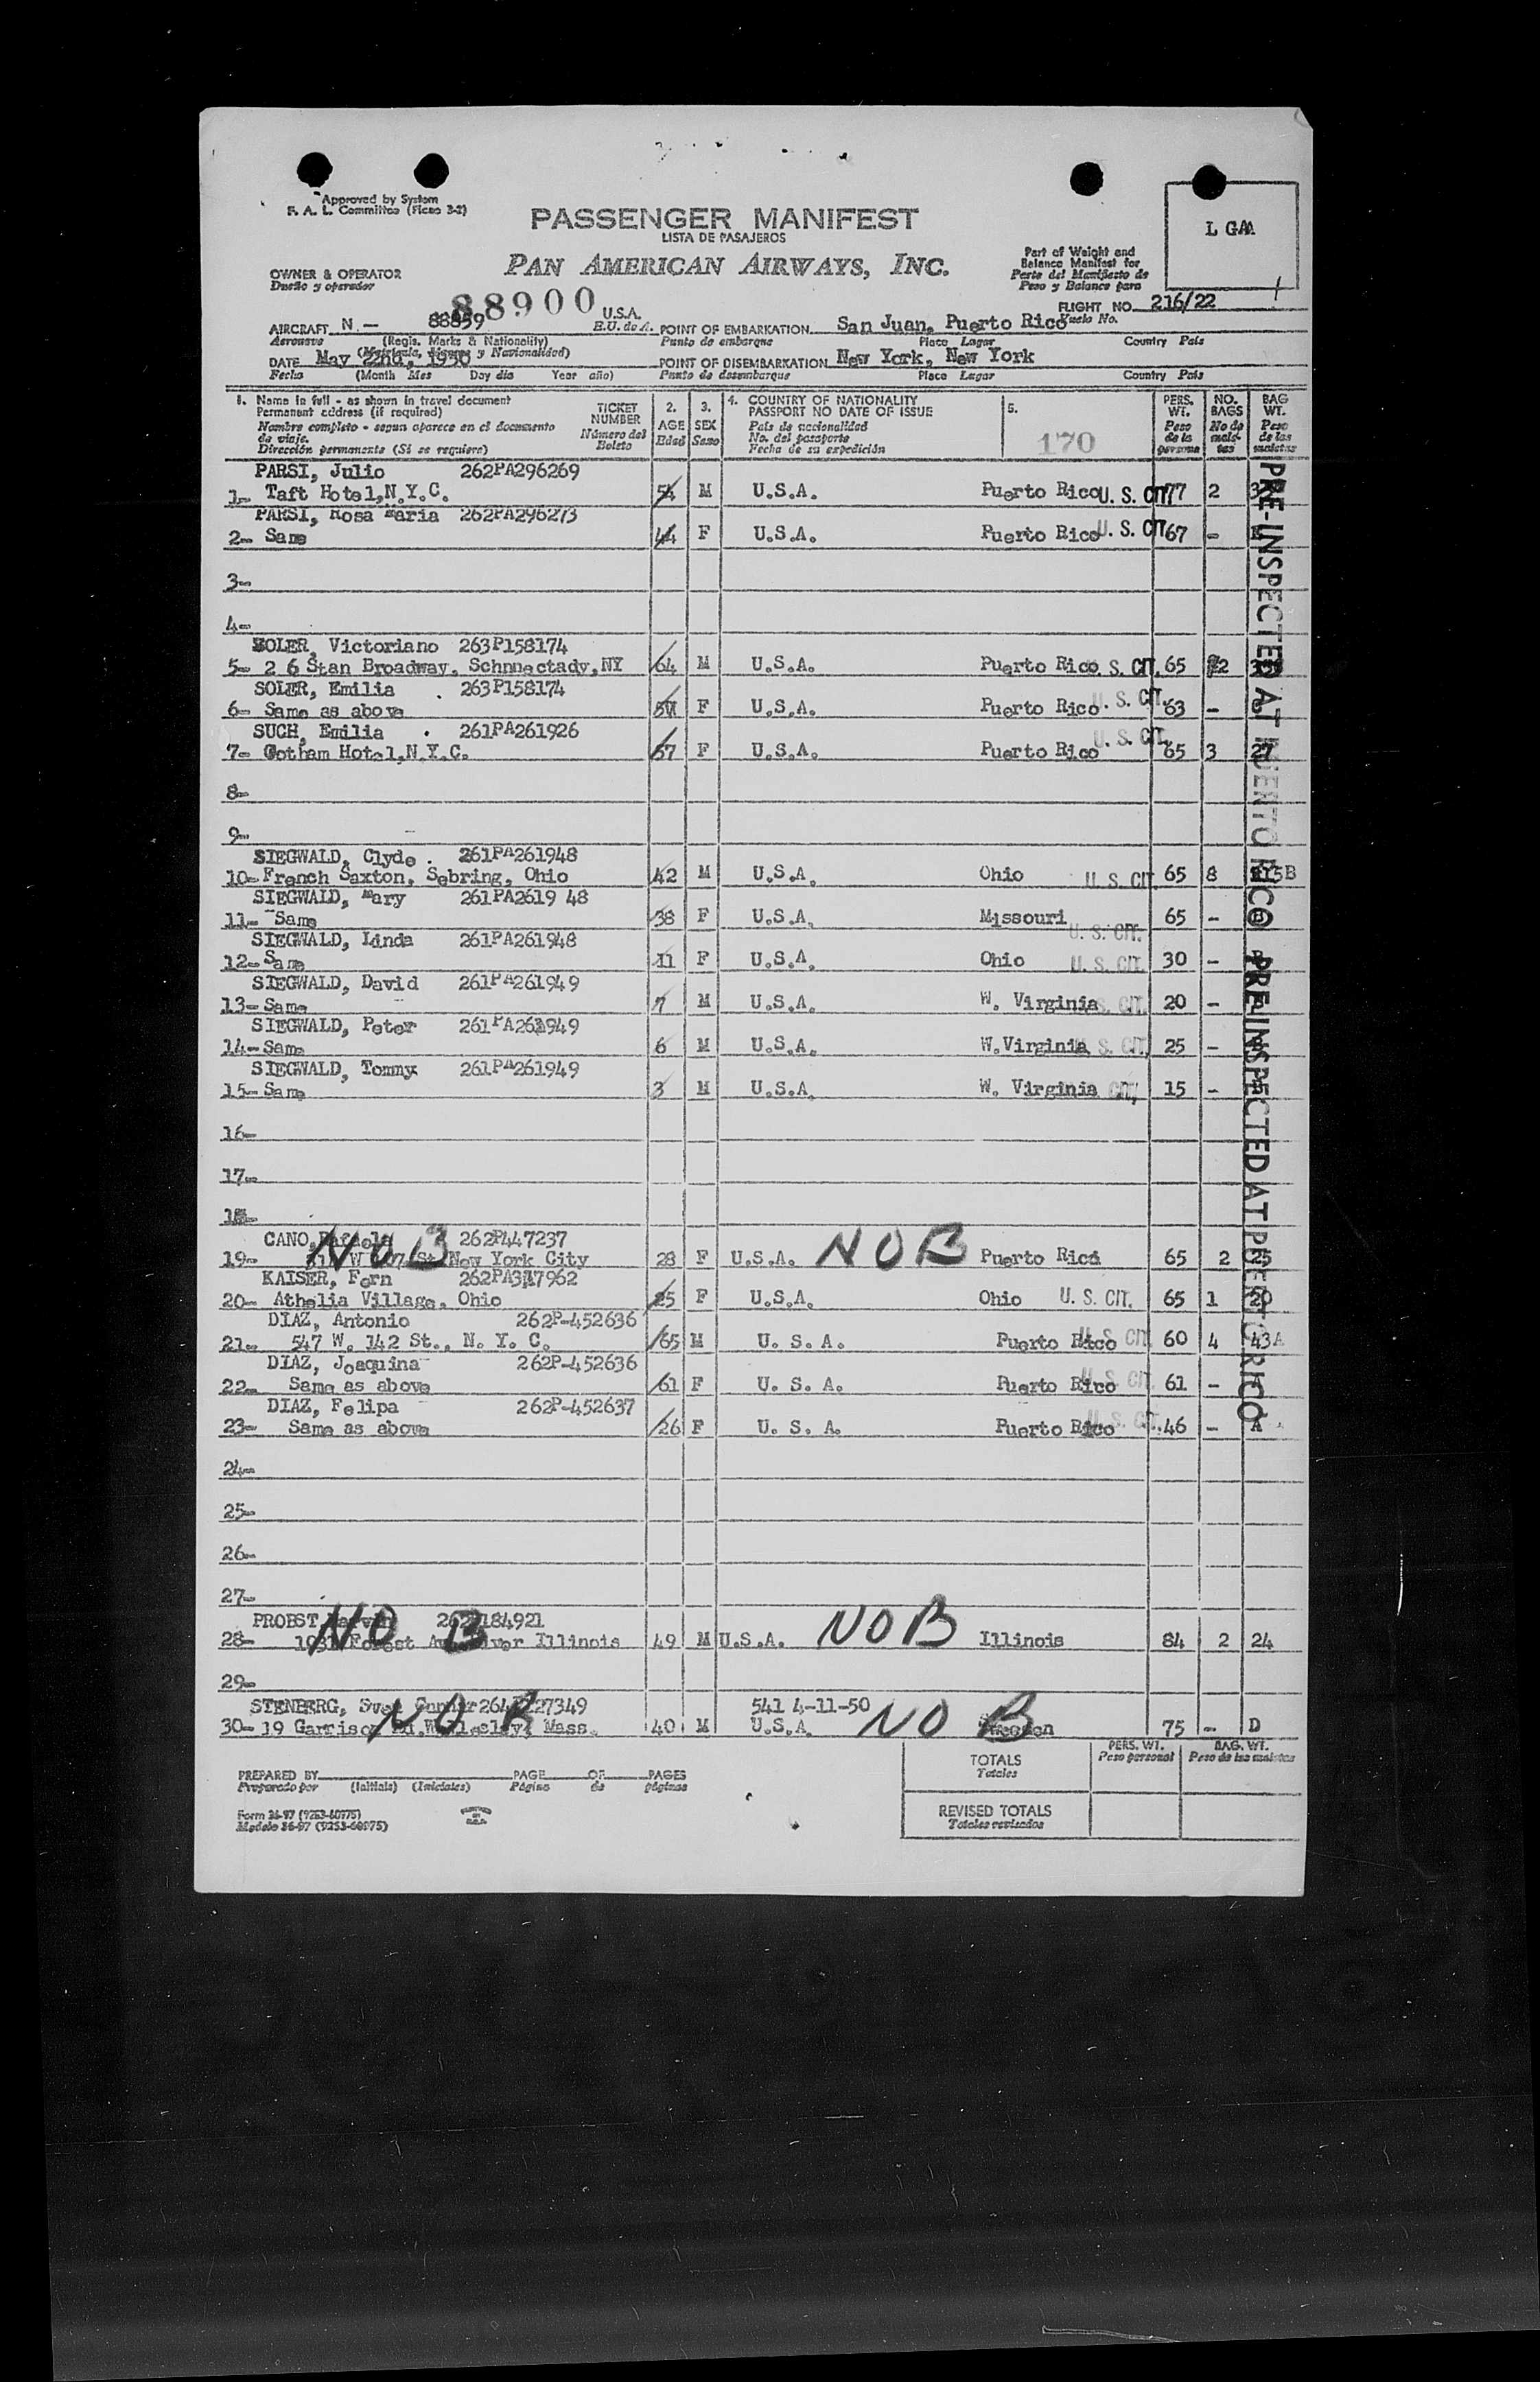 Approved by System
F. A. L. Committee (Ficao 3-2)
PASSENGER MANIFEST
LISTA DE PASAJEROS
PAN AMERICAN AIRWAYS, INC.
L GA
Part of Weight and
Balance Manifest for
Parte del Manifiesto de
Peso y Balance para
OWNER & OPERATOR
Dueño y operador
FLIGHT NO. 216/22
Vuelo No.
88900
AIRCRAFT N - 88859 U.S.A. POINT OF EMBARKATION San Juan, Puerto Rico
Aeronave (Regis. Marks & Nationality) E.U. de A. Punto de embarque Place Lugar Country País
(Matrícula, Signos y Nacionalidad)
DATE May 22nd, 1950 POINT OF DISEMBARKATION New York, New York
Fecha (Month Mes Day día Year año) Punto de desembarque Place Lugar Country País
1. Name in full - as shown in travel document
Permanent address (if required)
Nombre completo - segun aparece en el documento
de viaje.
Dirección permanente (Si se requiere)
TICKET
NUMBER
Número del
Boleto
2.
AGE
Edad
3.
SEX
Sexo
4. COUNTRY OF NATIONALITY
PASSPORT NO DATE OF ISSUE
País de nacionalidad
No. del pasaporte
Fecha de su expedición
5.
170
PERS.
WT.
Peso
de la
persona
NO.
BAGS
No de
male-
tas
BAG
WT.
Peso
de las
maletas
PARSI, Julio 262PA296269
1- Taft Hotel,N.Y.C. 54 M U.S.A. Puerto Rico U. S. CIT. 77 2
PARSI, Rosa Maria 262PA296273
2- Same 44 F U.S.A. Puerto Rico U. S. CIT. 67 -
3-
4-
SOLER, Victoriano 263P158174
5- 2 6 Stan Broadway, Schnnectady,NY 64 M U.S.A. Puerto Rico U. S. CIT. 65 2
SOLER, Emilia 263P158174
6- Same as above F U.S.A. Puerto Rico U. S. CIT. 63 -
SUCH, Emilia 261PA261926
7- Gotham Hotel,N.Y.C. 57 F U.S.A. Puerto Rico U. S. CIT. 65 3 27
8-
9-
SIEGWALD, Clyde 261PA261948
10- French Saxton, Sebring, Ohio 42 M U.S.A. Ohio U. S. CIT 65 8
SIEGWALD, Mary 261PA2619 48
11- Same 38 F U.S.A. Missouri U. S. CIT. 65 -
SIEGWALD, Linda 261PA261948
12- Same 11 F U.S.A. Ohio U. S. CIT. 30 -
SIEGWALD, David 261PA261949
13- Same 7 M U.S.A. W. Virginia S. CIT. 20 -
SIEGWALD, Peter 261PA261949
14- Same 6 M U.S.A. W.Virginia S. CIT. 25 -
SIEGWALD, Tommy 261PA261949
15- Same 3 M U.S.A. W. Virginia CIT. 15 -
16-
17-
18-
CANO, Rafaela 262P447237
19- W St New York City 28 F U.S.A. NOB Puerto Rico 65 2
NOB
KAISER, Fern 262PA317962
20- Athelia Village, Ohio 25 F U.S.A. Ohio U. S. CIT. 65 1
DIAZ, Antonio 262P-452636
21- 547 W. 142 St., N. Y. C. 65 M U. S. A. Puerto Rico U. S. CIT. 60 4 43A
DIAZ, Joaquina 262P-452636
22- Same as above 61 F U. S. A. Puerto Rico U. S. CIT. 61 -
DIAZ, Felipa 262P-452637
23- Same as above 26 F U. S. A. Puerto Rico U. S. CIT. 46 - A
24-
25-
26-
27-
PROBST, 184921
28- Forest Illinois 49 M U.S.A. NOB Illinois 84 2 24
NO B
29-
STENBERG, Sven Gunnar 264 27349 541 4-11-50
30- 19 Garrison Rd.Wellesley, Mass. 40 M U.S.A. NO B Sweden 75 - D
NO B
PRE-INSPECTED AT PUERTO RICO PRE-INSPECTED AT PUERTO RICO
TOTALS
Totales
PERS. WT.
Peso personal
BAG. WT.
Peso de las maletas
REVISED TOTALS
Totales revisados
PREPARED BY PAGE OF PAGES
Preparado por (Initials) (Iniciales) Página de páginas
Form 36-97 (9253-60975)
Modelo 36-97 (9253-60975)